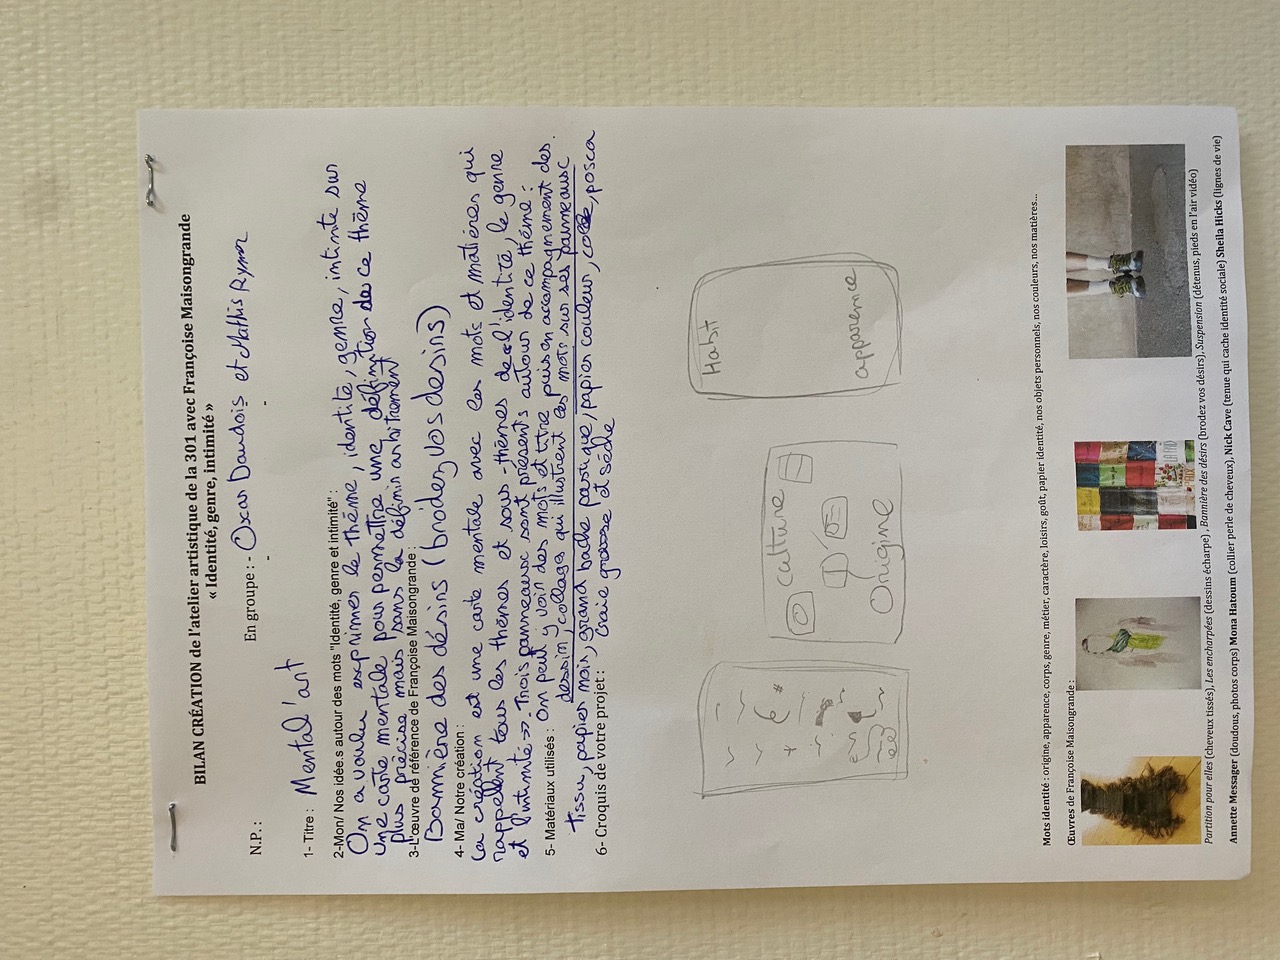 BILAN CRÉATION de l'atelier artistique de la 301 avec Françoise Maisongrande
« Identité, genre, intimité »
N.P. : En groupe : - Oscar Dandois et Mathis Rymer
1- Titre : Mental'art
2-Mon/ Nos idée.s autour des mots "Identité, genre et intimité" :
On a voulu exprimer le thème, identité, genre, intimité sur
une carte mentale pour permettre une définition de ce thème
plus précise mais sans la définir arbitrairement
3-L'œuvre de référence de Françoise Maisongrande :
Bannière des désirs (brodez vos desirs)
4- Ma/ Notre création :
La création est une carte mentale avec les mots et matières qui
rappellent tous les thèmes et sous-thèmes de l'identité, le genre
et l'intimité ». Trois panneaux sont présents autour de ce thème :
On peut y voir des mots et titre puis en accompagnement des
dessin/collage qui illustrent ces mots sur ses panneaux
5- Matériaux utilisés :
Tissu, papier mais, grand bache pastique, papier couleur, colle, posca
Craie grasse et sèche
6- Croquis de votre projet :
Culture
Origine
Habit
apparence
Mots identité : origine, apparence, corps, genre, métier, caractère, loisirs, goût, papier identité, nos objets personnels, nos couleurs, nos matières...
Œuvres de Françoise Maisongrande :
Partition pour elles (cheveux tissés), Les encharpées (dessins écharpe) , Bannière des désirs (brodez vos désirs), Suspension (détenus, pieds en l'air vidéo)
Annette Messager (doudous, photos corps) Mona Hatoum (collier perle de cheveux), Nick Cave (tenue qui cache identité sociale) Sheila Hicks (lignes de vie)